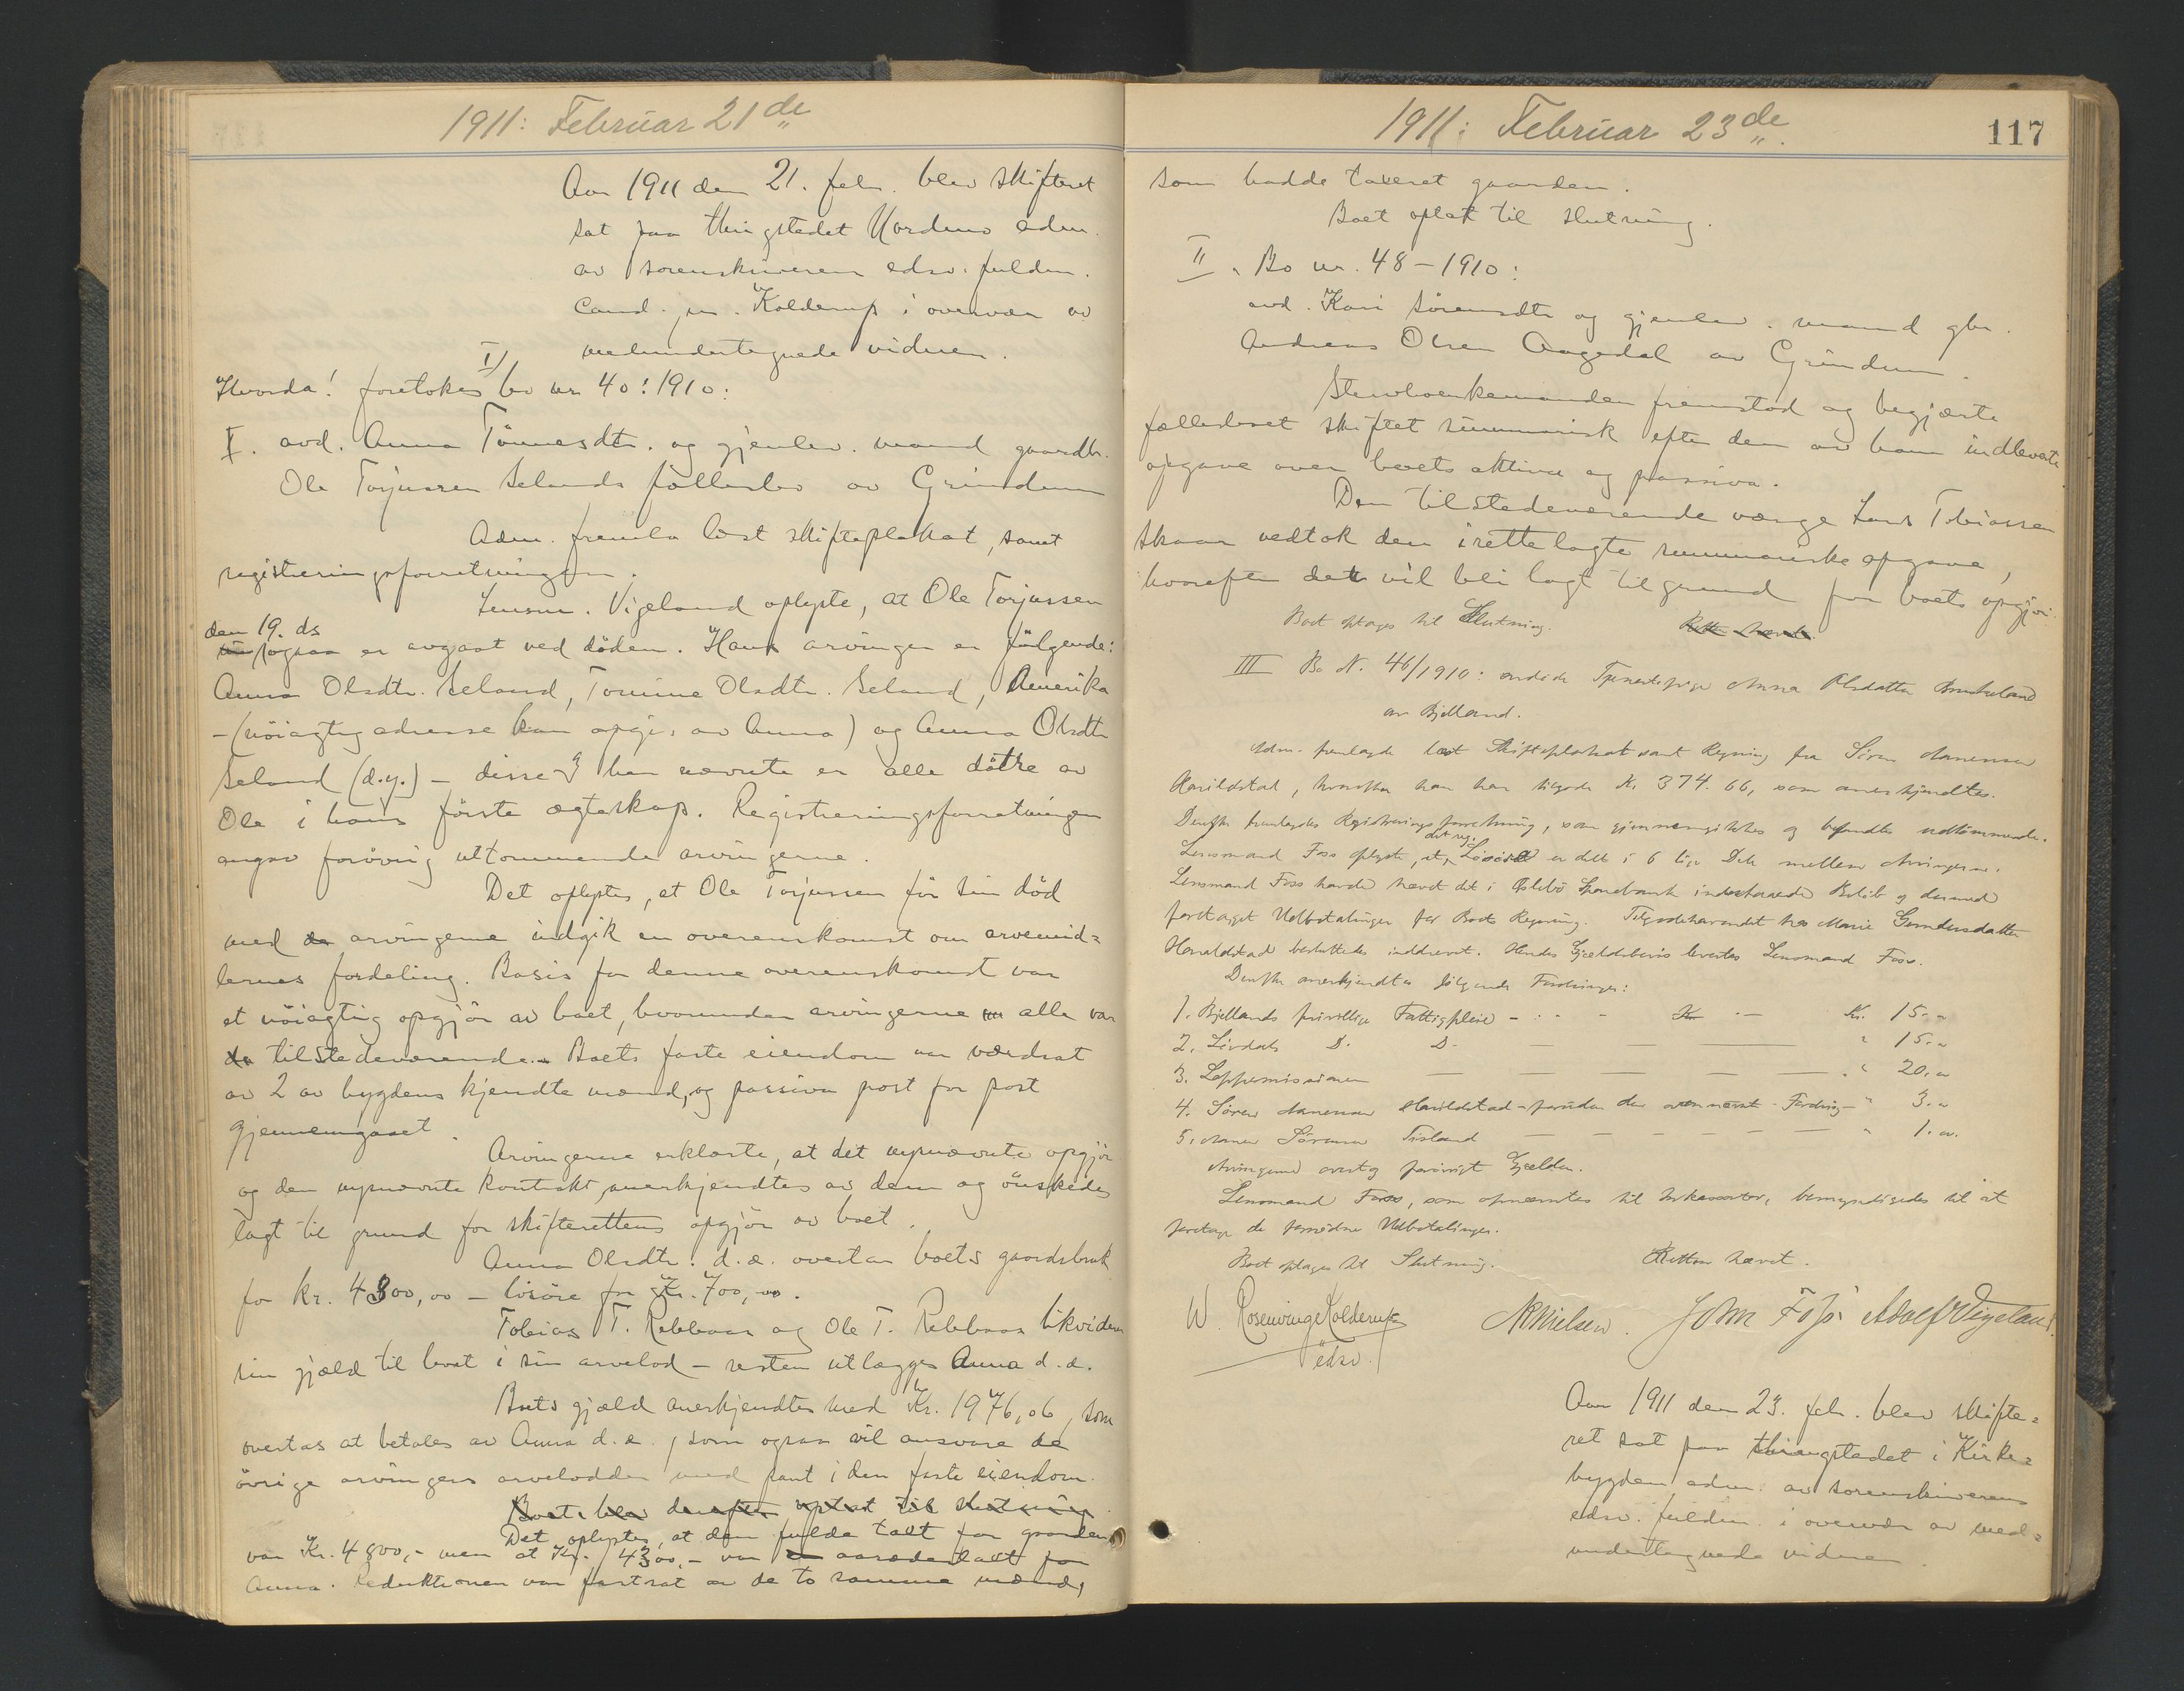 1911: Februar 21de
Aar 1911 den 21. febr. blev skifteret
sat paa thingstedet Nordens adm.
av sorenskriveren edsv. fuldm.
Cand. jur. Kolderup i overvær av
medundertegnede vidner.
I)
Hvorda! foretokes bo nr. 40: 1910:
I. avd. Anna Tönnesdtr. og gjenlev. mand gaardbr.
Ole Torjussen Selands fællesbo av Grindum
Adm. fremla læst skifteplakat, samt
registreringsforretningen.
Lensm. Vigeland oplyste, at Ole Torjussen
den 19. ds
ogsaa er avgaat ved döden. Hans arvinger er fölgende:
Anna Olsdtr. Seland, Tomine Olsdtr. Seland, Amerika
- (nöiagtig adresse kan opgis av Anna) og Anna Olsdtr
Seland (d.y.) - disse 3 her nævnte er alle dötre av
Ole i hans förste ægteskap. Registreringsforretningen
angav forövrig uttömmende arvingerne.
Det oplystes, at Ole Torjussen för sin död
med de arvingerne indgik en overenskomst om arvemid=
lernes fordeling. Basis for denne overenskomst var
et nöiagtig opgjör av boet, hvorunder arvingerne alle var
tilstedeværende. Boets faste eiendom var værdsat
av 2 av bygdens kjendte mænd, og passiva post for post
gjennemgaaet.
Arvingerne erklærte, at det nynævnte opgjör
og den nynævnte kontrakt, anerkjendtes av dem og önskedes
lagt til grund for skifterettens opgjör av boet.
Anna Olsdtr. d.e. overtar boets gaardsbruk
for kr. 4300,00 - lösöre for Kr. 700,00.
Tobias T. Rebbaas og Ole T. Rebbaas likviderer
sin gjæld til boet i sin arvelod - resten utlægges Anna d.e.
Boets gjæld anerkjendtes med Kr. 1976,06, som
overtas at betales av Anna d.e., som ogsaa vil ansvare de
övrige arvingers arvelodder med pant i den faste eiendom.
Boet blev derefter optat til slutning
Det oplystes, at den fulde takt for gaarden
var Kr. 4800,- men at Kr. 4300,- var aasædestakt for
Anna. Reduktionen var fastsat av de to samme mænd,
1911: Februar 23de
117
som hadde taxeret gaarden.
Boet optat til slutning.
II. Bo nr. 48-1910:
avd. Kari Sörensdtr og gjenlev. mand gbr.
Andreas Olsen Aagedal av Grindum.
Stervboenkemanden fremstod og begjærte
fællesboet skiftet summarisk efter den av ham indleverte
opgave over boets aktiva og passiva.
Den tilstedeværende værge Lars Tobiassen
Skaar vedtok den irettelagte summariske opgave,
hvorefter dette vil bli lagt til grund for boets opgjör.
Boet optages til Slutning. Retten hævet.
III Bo N. 46/1910: avdöde Tjenestepige Anna Olsdatter
av Bjelland.
Adm. fremlagde læst Skifteplakat samt Regning fra Sören Aanensen
Haraldstad, hvorefter han har tilgode Kr. 374.66, som anerkjendtes.
Derefter fremlagdes Registreringsforretning, som gjennemgikkes og befandtes udtömmende.
det reg.
Lensmand Foss oplyste, at Lösöre er delt i 6 lige Dele mellem Arvingerne.
Lensmand Foss havde hævet det i Öslebö Sparebank indestaaende Belöb og dermed
foretaget Udbetalinger for Boets Regning. Tilgodehavendet hos Marie Gundersdatter
Haraldstad besluttedes inddrevet. Hendes Gjældsbevis levertes Lensmand Foss.
Derefter anerkjendtes fölgende Fordringer:
1. Bjellands frivillige Fattigpleie - - - Kr. - Kr. 15.-
2. Livdals D. D. - - " 15.-
3. Lappemissionen - - - - - " 20.-
4. Sören Aanensen Haraldstad - foruden den ovennævnte Fordring - " 3.-
5. Aanen Sörensen - - - - - - " 1.-
Arvingerne overtog forövrigt Gjælden.
Lensmand Foss, som opnævntes til Inkassator, bemyndigedes til at
foretage de fornödne Udbetalinger.
Boet optages til Slutning. Retten hævet.
W. Rosenvinge Kolderup
edsv.
NNielsen. John Foss. Adolf Vigeland.
Aar 1911 den 23. febr. blev skifte=
ret sat paa thingstedet i Kirke=
bygden adm. av sorenskriverens
edsv. fuldm. i overvær av med=
undertegnede vidner.